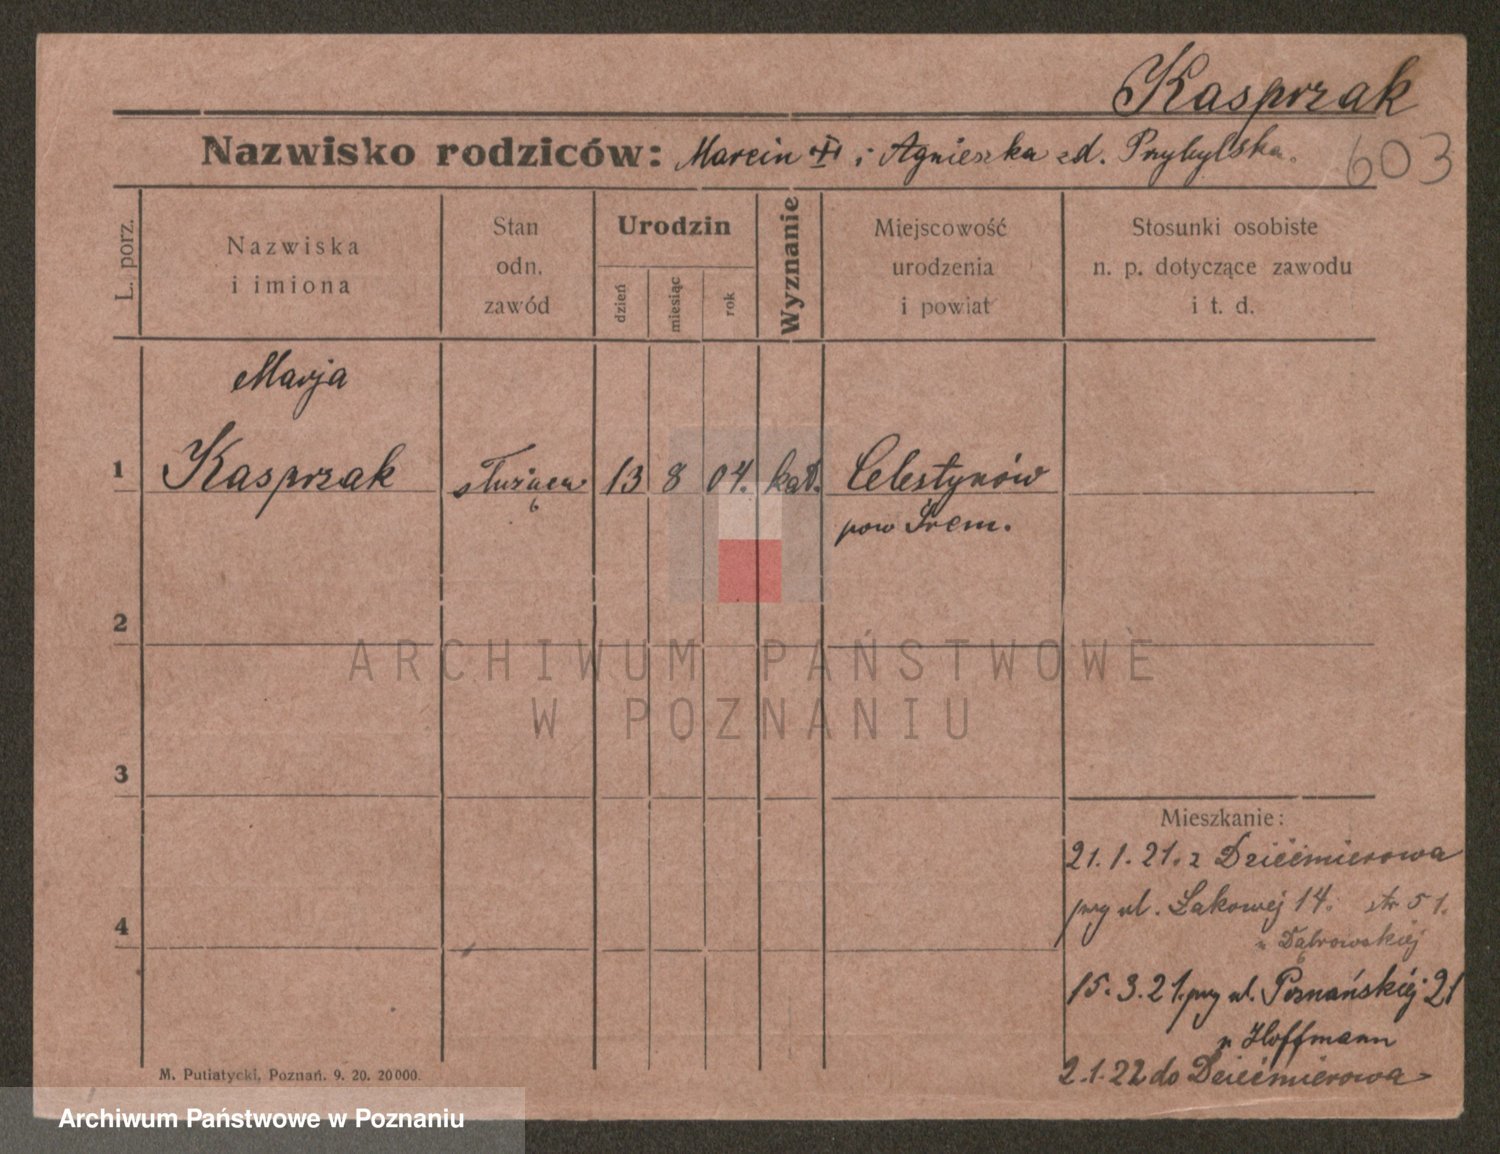 Kasprzak
Nazwisko rodziców: Marcin i Agnieszka zd. Przybylska.
603
L. porz.
Nazwiska
i imiona
Stan
odn.
zawód
Urodzin
dzień
miesiąc
rok
Wyznanie
Miejscowość
urodzenia
i powiat
Stosunki osobiste
n. p. dotyczące zawodu
i t. d.
Marja
1 Kasprzak służąca 13 8 04. kat. Celestynów
pow Śrem.
2
ARCHIWUM PAŃSTWOWE
W POZNANIU
3
Mieszkanie:
21.1.21. z Dziećmierowa
przy ul. Łąkowej 14. str 51.
4
u Dąbrowskiej
15.3.21. przy ul. Poznańskiej 21
u Hoffmann
2.1.22 do Dziećmierowa
M. Putiatycki, Poznań. 9. 20. 20000.
Archiwum Państwowe w Poznaniu